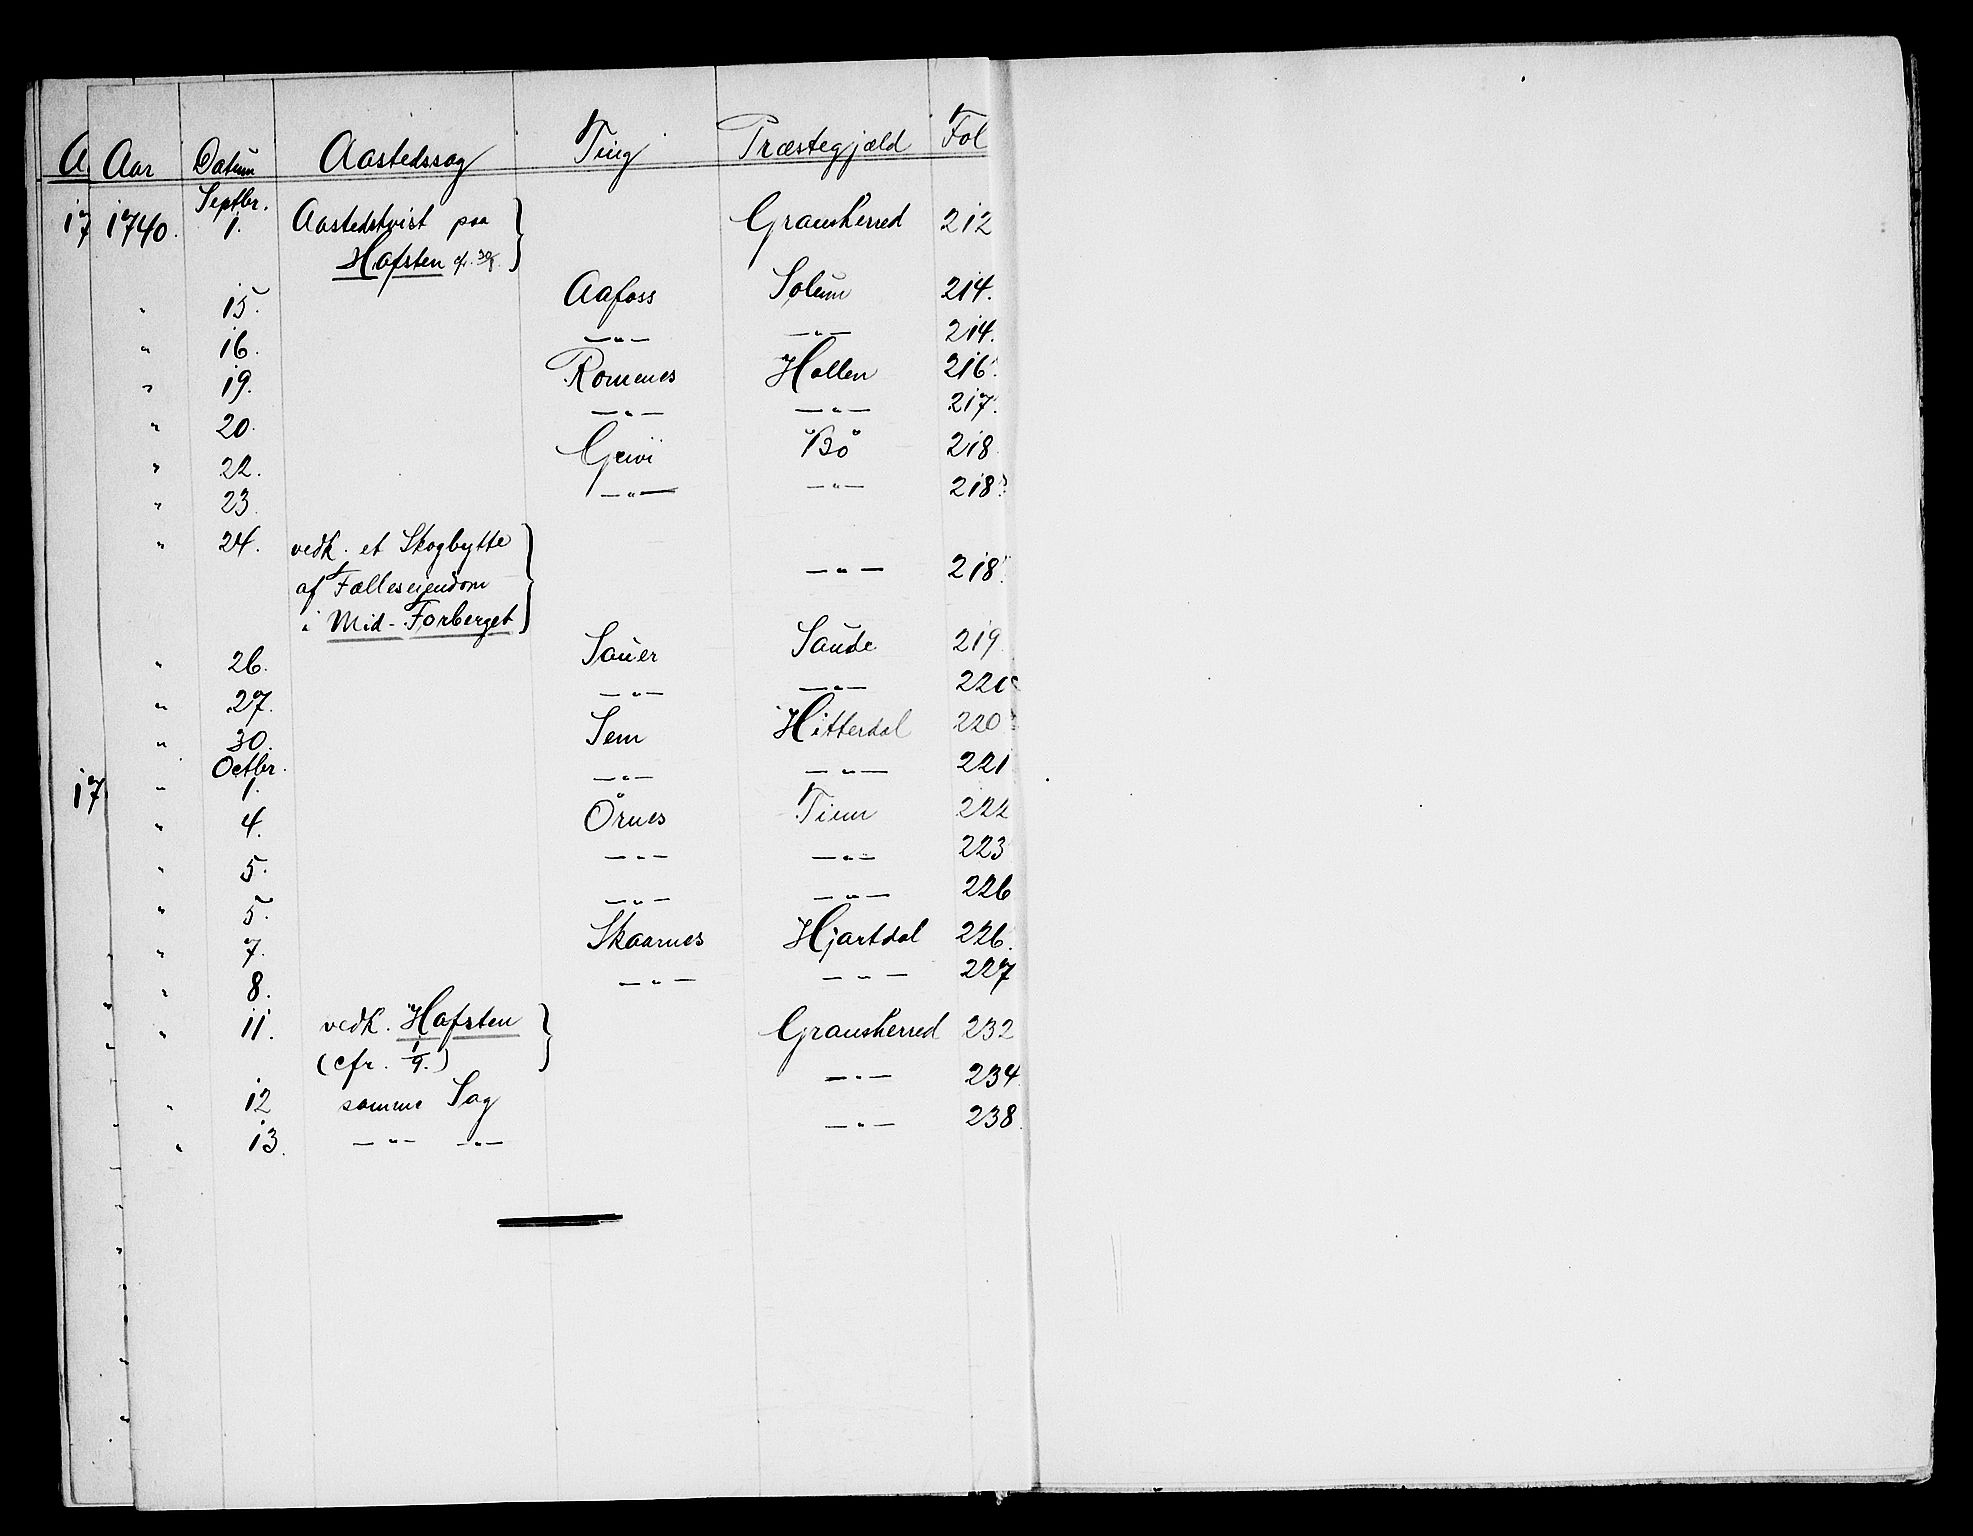 Aar Datum Aastedssag Ting Præstegjæld Fol
Septbr.
1740. 1. Aastedstvist paa Gransherred 212
Hafsten cfr.
" 15. Aafoss Solum 214.
" 16. —"— —"— 214.
" 19. Romenes Hollen 216.
" 20. —"— —"— 217.
" 22. Geivi Bö 218
" 23. —"— —"— 218
" 24. vedk. et Skogbytte
af Fælleseiendom —"— 218
i Mid-Forberget
" 26. Sauer Saude 219
" 27. —"— —"— 220
" 30. Sem Hitterdal 220
Octbr.
" 1. —"— —"— 221
" 4. Örnes Tinn 222
" 5. —"— —"— 223
" 5. —"— —"— 226
" 7. Skaarnes Hjartdal 226.
" 8. —"— —"— 227
" 11. vedk. Hafsten Gransherred 232
(cfr. 1/9.)
" 12 samme Sag —"— 234
" 13. —"— —"— —"— 238.